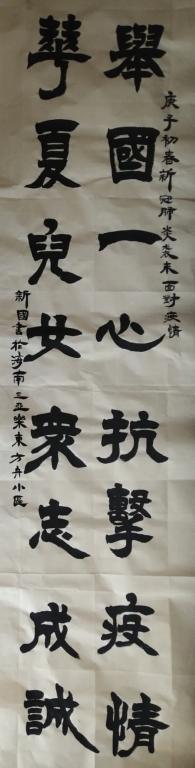 庚子初春新冠肺炎袭来面對疫情
舉國一心抗擊疫情
華夏兒女衆志成誠
新國書於海南三亚樂東方舟小區